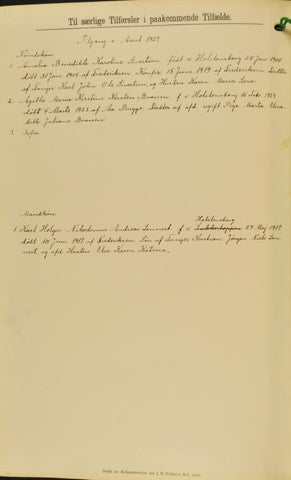 Til særlige Tilførsler i paakommende Tilfælde.
Tilgang i Aaret 1927
Kvindekøn
1. Amalie Benedikte Karoline Sivertsen født v. Holstensborg 28 Jan 1904
døbt 31 Jan 1904 af Frederiksen Konfir. 15 Juni 1919 af Frederiksen Datter
af Fanger Karl John Ole Sivertsen og Hustru Karen Maria Sara
2. Agathe Maria Kirstine Kirsten f. v. Holstensborg 15 Feb. 1923
døbt 5 Marts 1923 af Aa Bugge Datter af afd. ugift Pige Marta Elisa
beth Juliane
3.
Mandkøn
Holstensborg
1. Karl Holger Nikodemus Andreas Lennert f. v. 29 Maj 1917
døbt 10 Juni 1917 af Frederiksen Søn af Fanger Kristian Jørgen Niels Len
nert og afd. Hustru Else Karen Katrine.